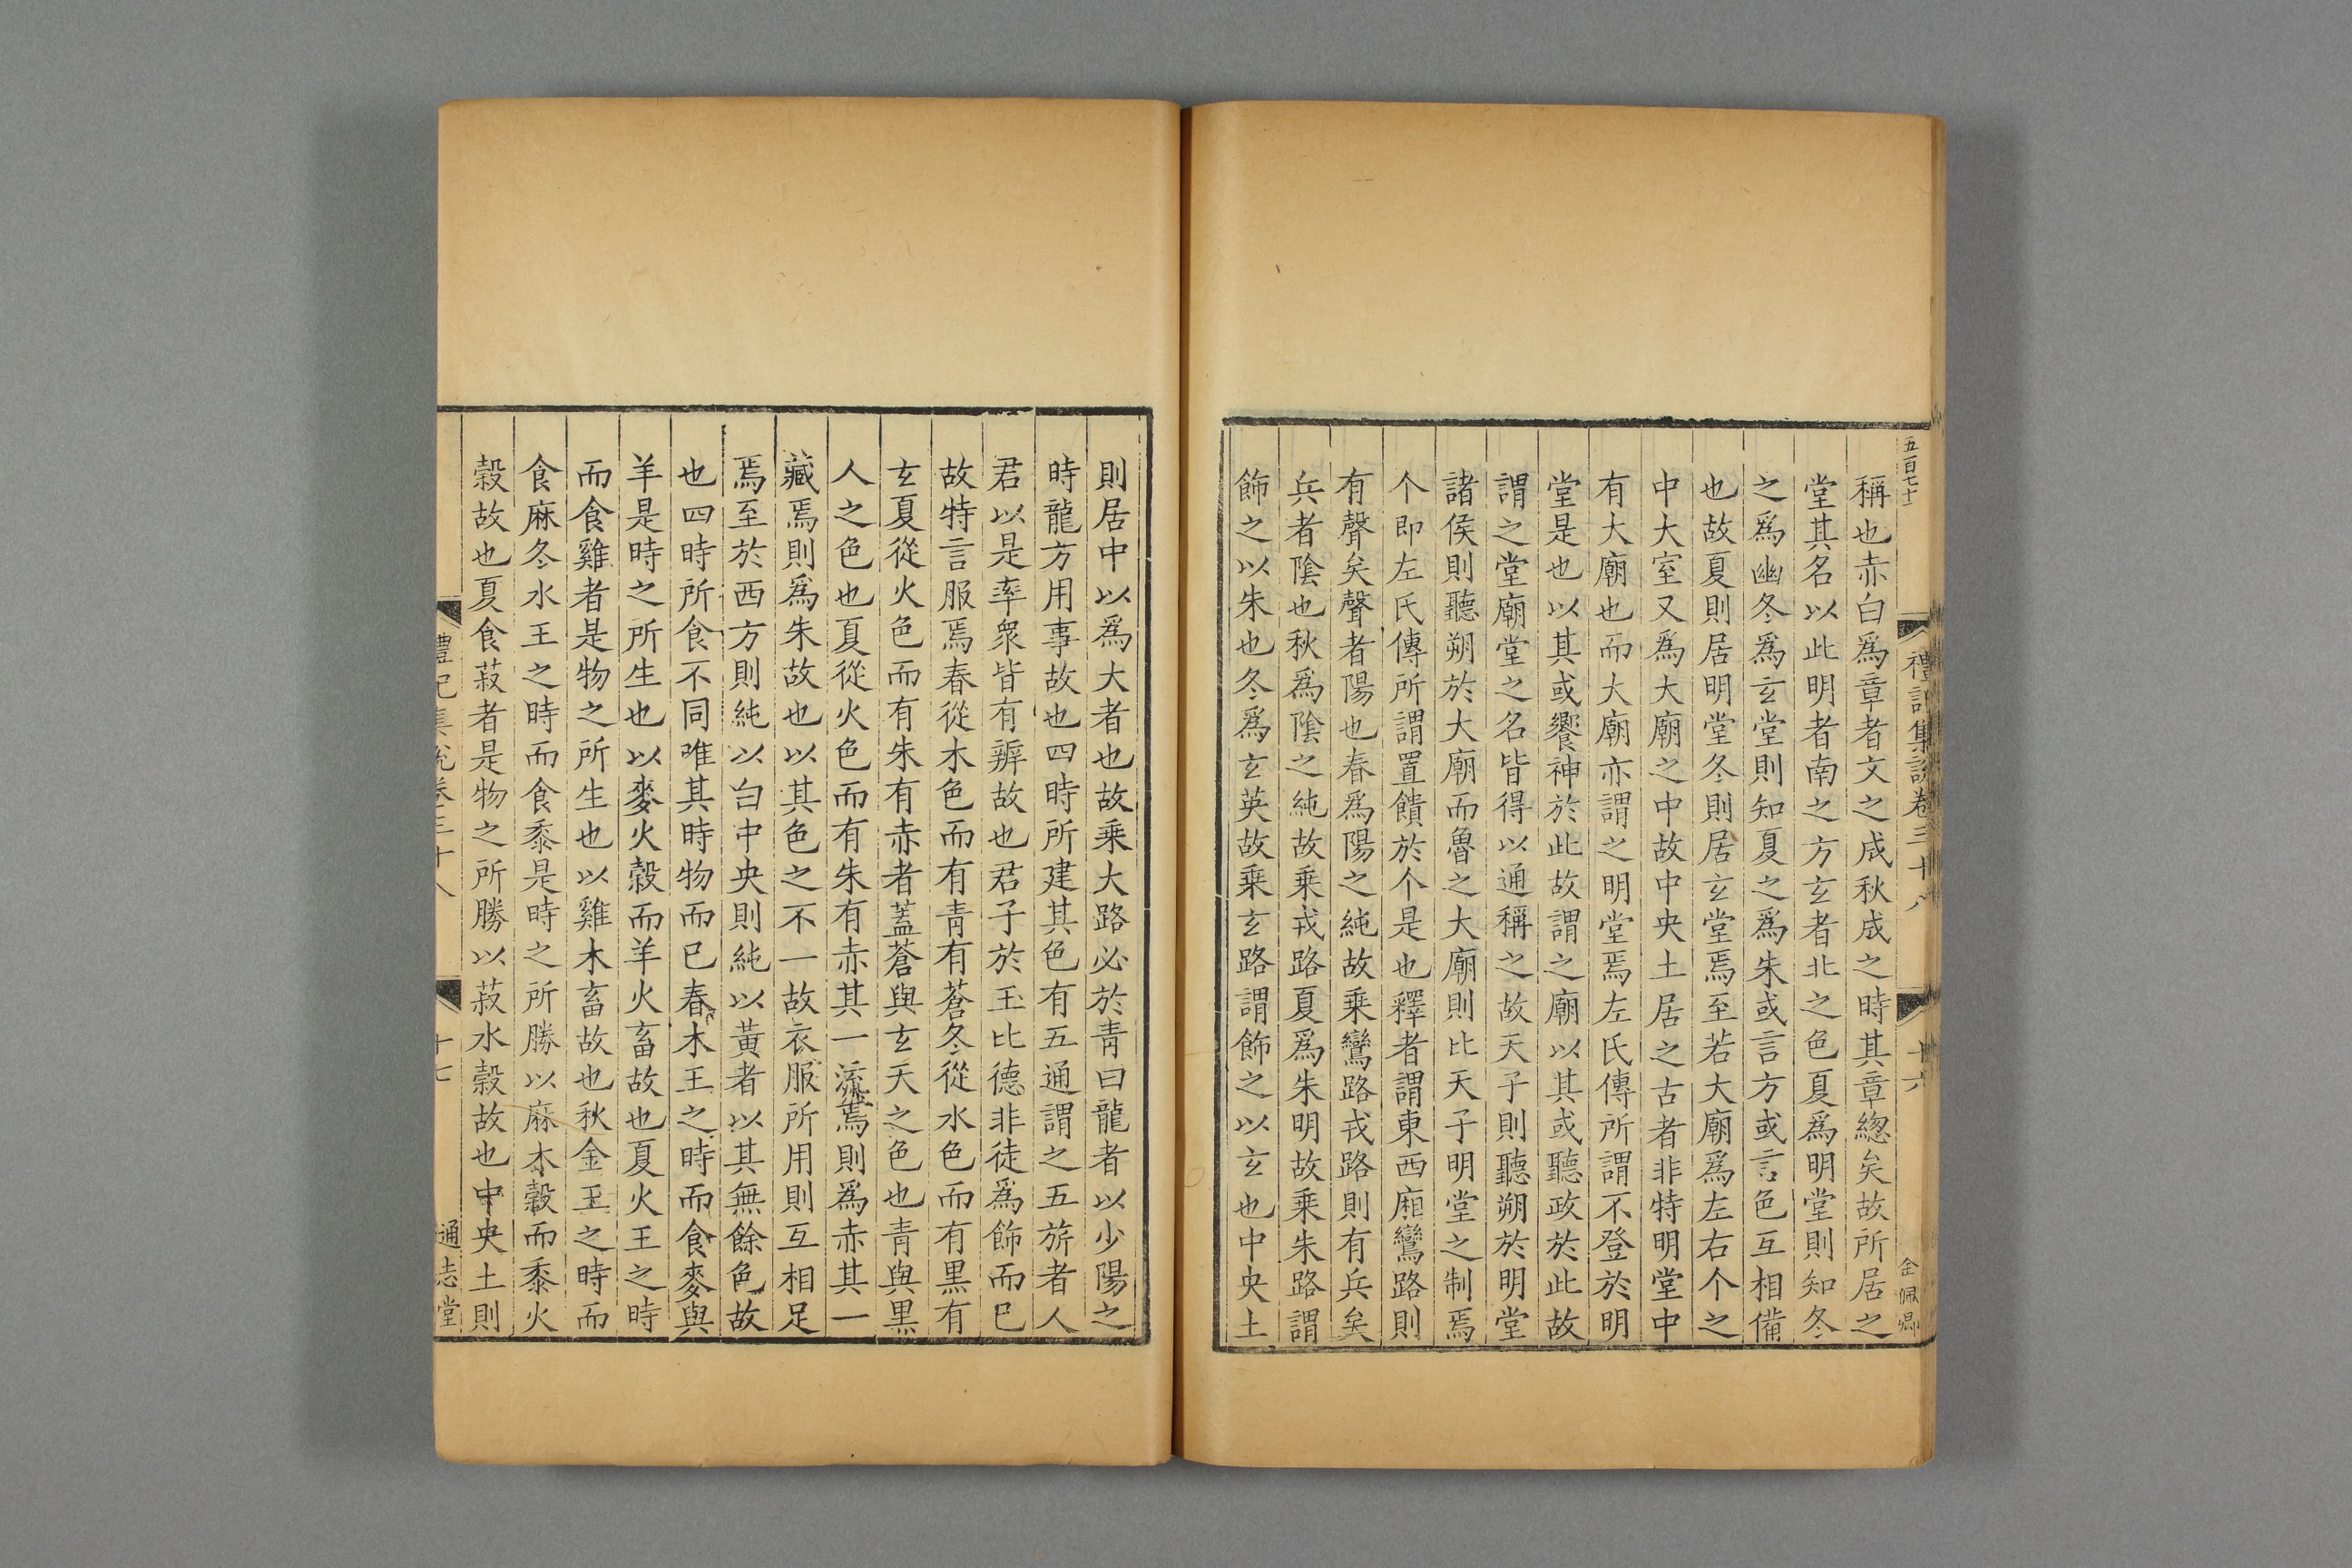 五百七十
禮記集說卷三十八
十六
金佩卿
稱也赤白爲章者文之成秋成之時其章緫矣故所居之
堂其名以此明者南之方玄者北之色夏爲明堂則知冬
之爲幽冬爲玄堂則知夏之爲朱或言方或言色互相備
也故夏則居明堂冬則居玄堂焉至若大廟爲左右个之
中大室又爲大廟之中故中央土居之古者非特明堂中
有大廟也而大廟亦謂之明堂焉左氏傳所謂不登於明
堂是也以其或饗神於此故謂之廟以其或聽政於此故
謂之堂廟堂之名皆得以通稱之故天子則聽朔於明堂
諸侯則聽朔於大廟而魯之大廟則比天子明堂之制焉
个即左氏傳所謂置饋於个是也釋者謂東西廂鸞路則
有聲矣聲者陽也春爲陽之純故乗鸞路戎路則有兵矣
兵者陰也秋爲陰之純故乗戎路夏爲朱明故乗朱路謂
飾之以朱也冬爲玄英故乗玄路謂飾之以玄也中央土
則居中以爲大者也故乗大路必於青曰龍者以少陽之
時龍方用事故也四時所建其色有五通謂之五旂者人
君以是率衆皆有辨故也君子於玉比德非徒爲飾而已
故特言服焉春從木色而有青有蒼冬從水色而有黒有
玄夏從火色而有朱有赤者蓋蒼與玄天之色也青與黒
人之色也夏從火色而有朱有赤其一流焉則爲赤其一
藏焉則爲朱故也以其色之不一故衣服所用則互相足
焉至於西方則純以白中央則純以黃者以其無餘色故
也四時所食不同唯其時物而已春木王之時而食麥與
羊是時之所生也以麥火榖而羊火畜故也夏火王之時
而食雞者是物之所生也以雞木畜故也秋金王之時而
食麻冬水王之時而食黍是時之所勝以麻木榖而黍火
榖故也夏食菽者是物之所勝以菽水榖故也中央土則
禮記集說卷三十八
十七
通志堂